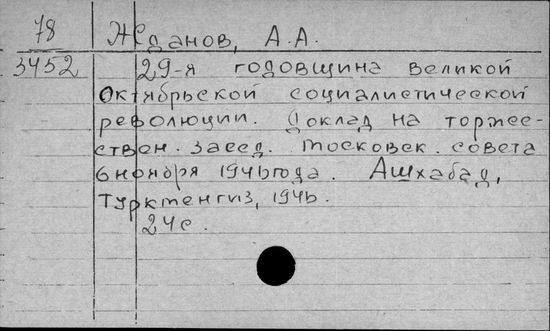 78 Жданов, А.А.
3452 29-я годовщина Великой
Октябрьской социалистической
революции. Доклад на торже-
ствен. засед. Московск. совета
6 ноября 1946 года. Ашхабад,
Туркменгиз, 1946.
24 с.